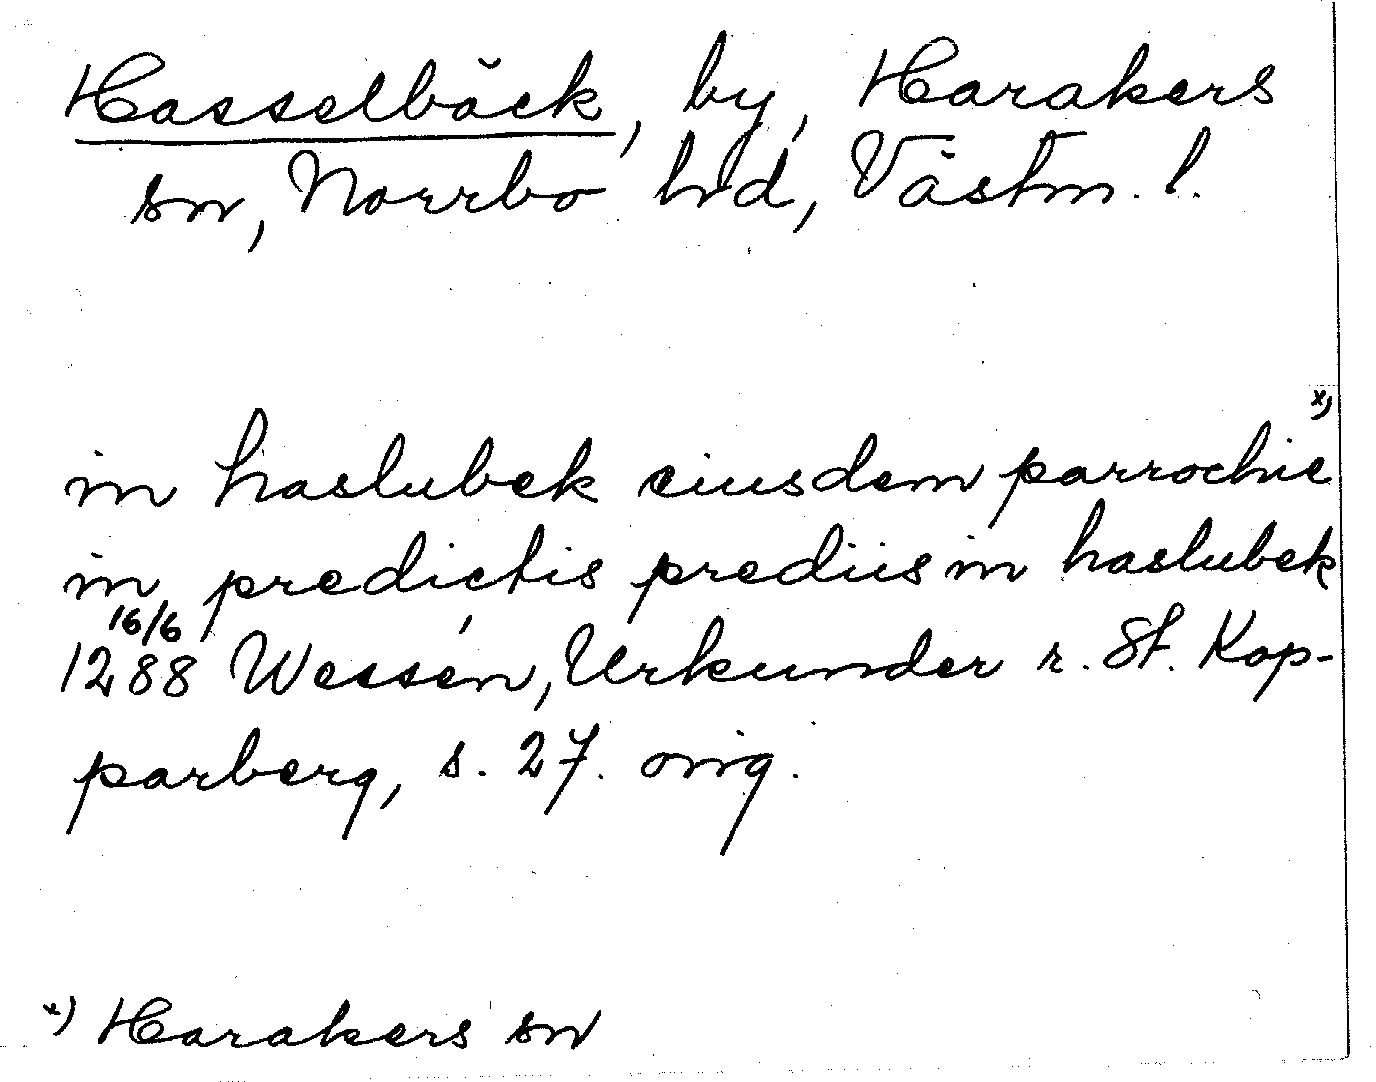 Hasselbäck, by, Harakers
sn, Norrbo hd, Västm. l.
x)
in haslubek eiusdem parrochie
in predictis prediis in haslubek
16/6
1288 Wessén, Urkunder r. St. Kop-
parberg, s. 27. orig.
x) Harakers sn